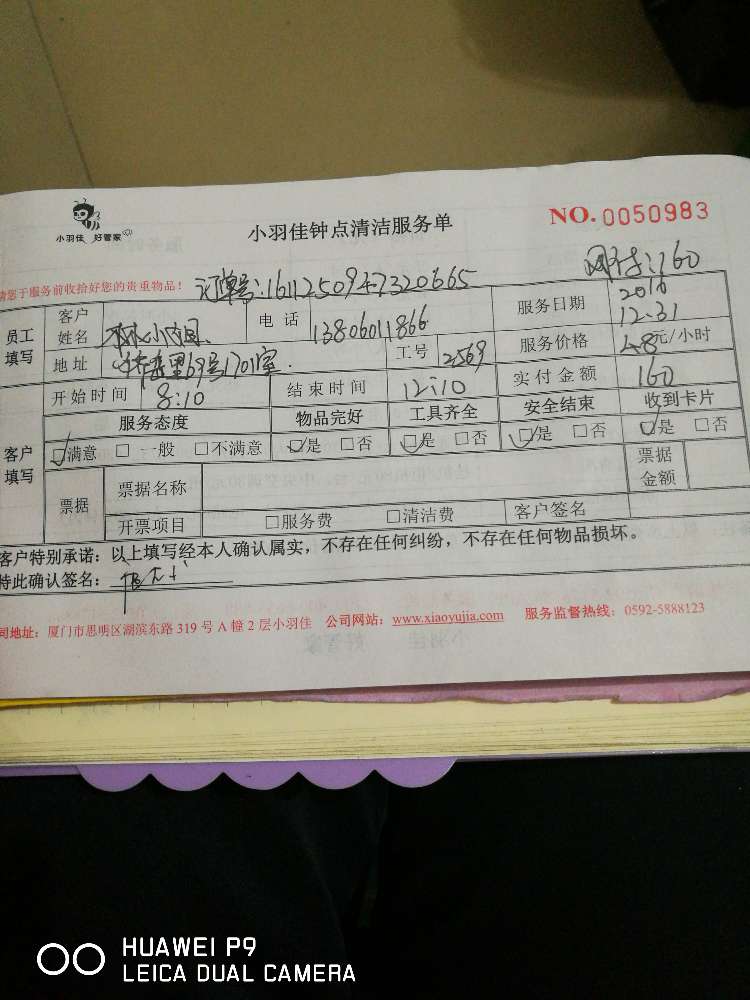 小羽佳 好管家
小羽佳钟点清洁服务单
NO. 0050983
网付:160
请您于服务前收拾好您的贵重物品! 订单号:1611250947320665
员工填写 客户姓名 林小 电话 13806011866 服务日期 2016 12.31
地址 里69号1701室. 工号 2569 服务价格 48元/小时
客户填写 开始时间 8:10 结束时间 12:10 实付金额 160
服务态度 物品完好 工具齐全 安全结束 收到卡片
☑满意 □一般 □不满意 ☑是 □否 ☑是 □否 ☑是 □否 ☑是 □否
票据 票据名称 票据金额
开票项目 □服务费 □清洁费 客户签名
客户特别承诺:以上填写经本人确认属实,不存在任何纠纷,不存在任何物品损坏。
特此确认签名:
司地址:厦门市思明区湖滨东路 319 号 A 幢 2 层小羽佳 公司网站:www.xiaoyujia.com 服务监督热线:0592-5888123
HUAWEI P9
LEICA DUAL CAMERA